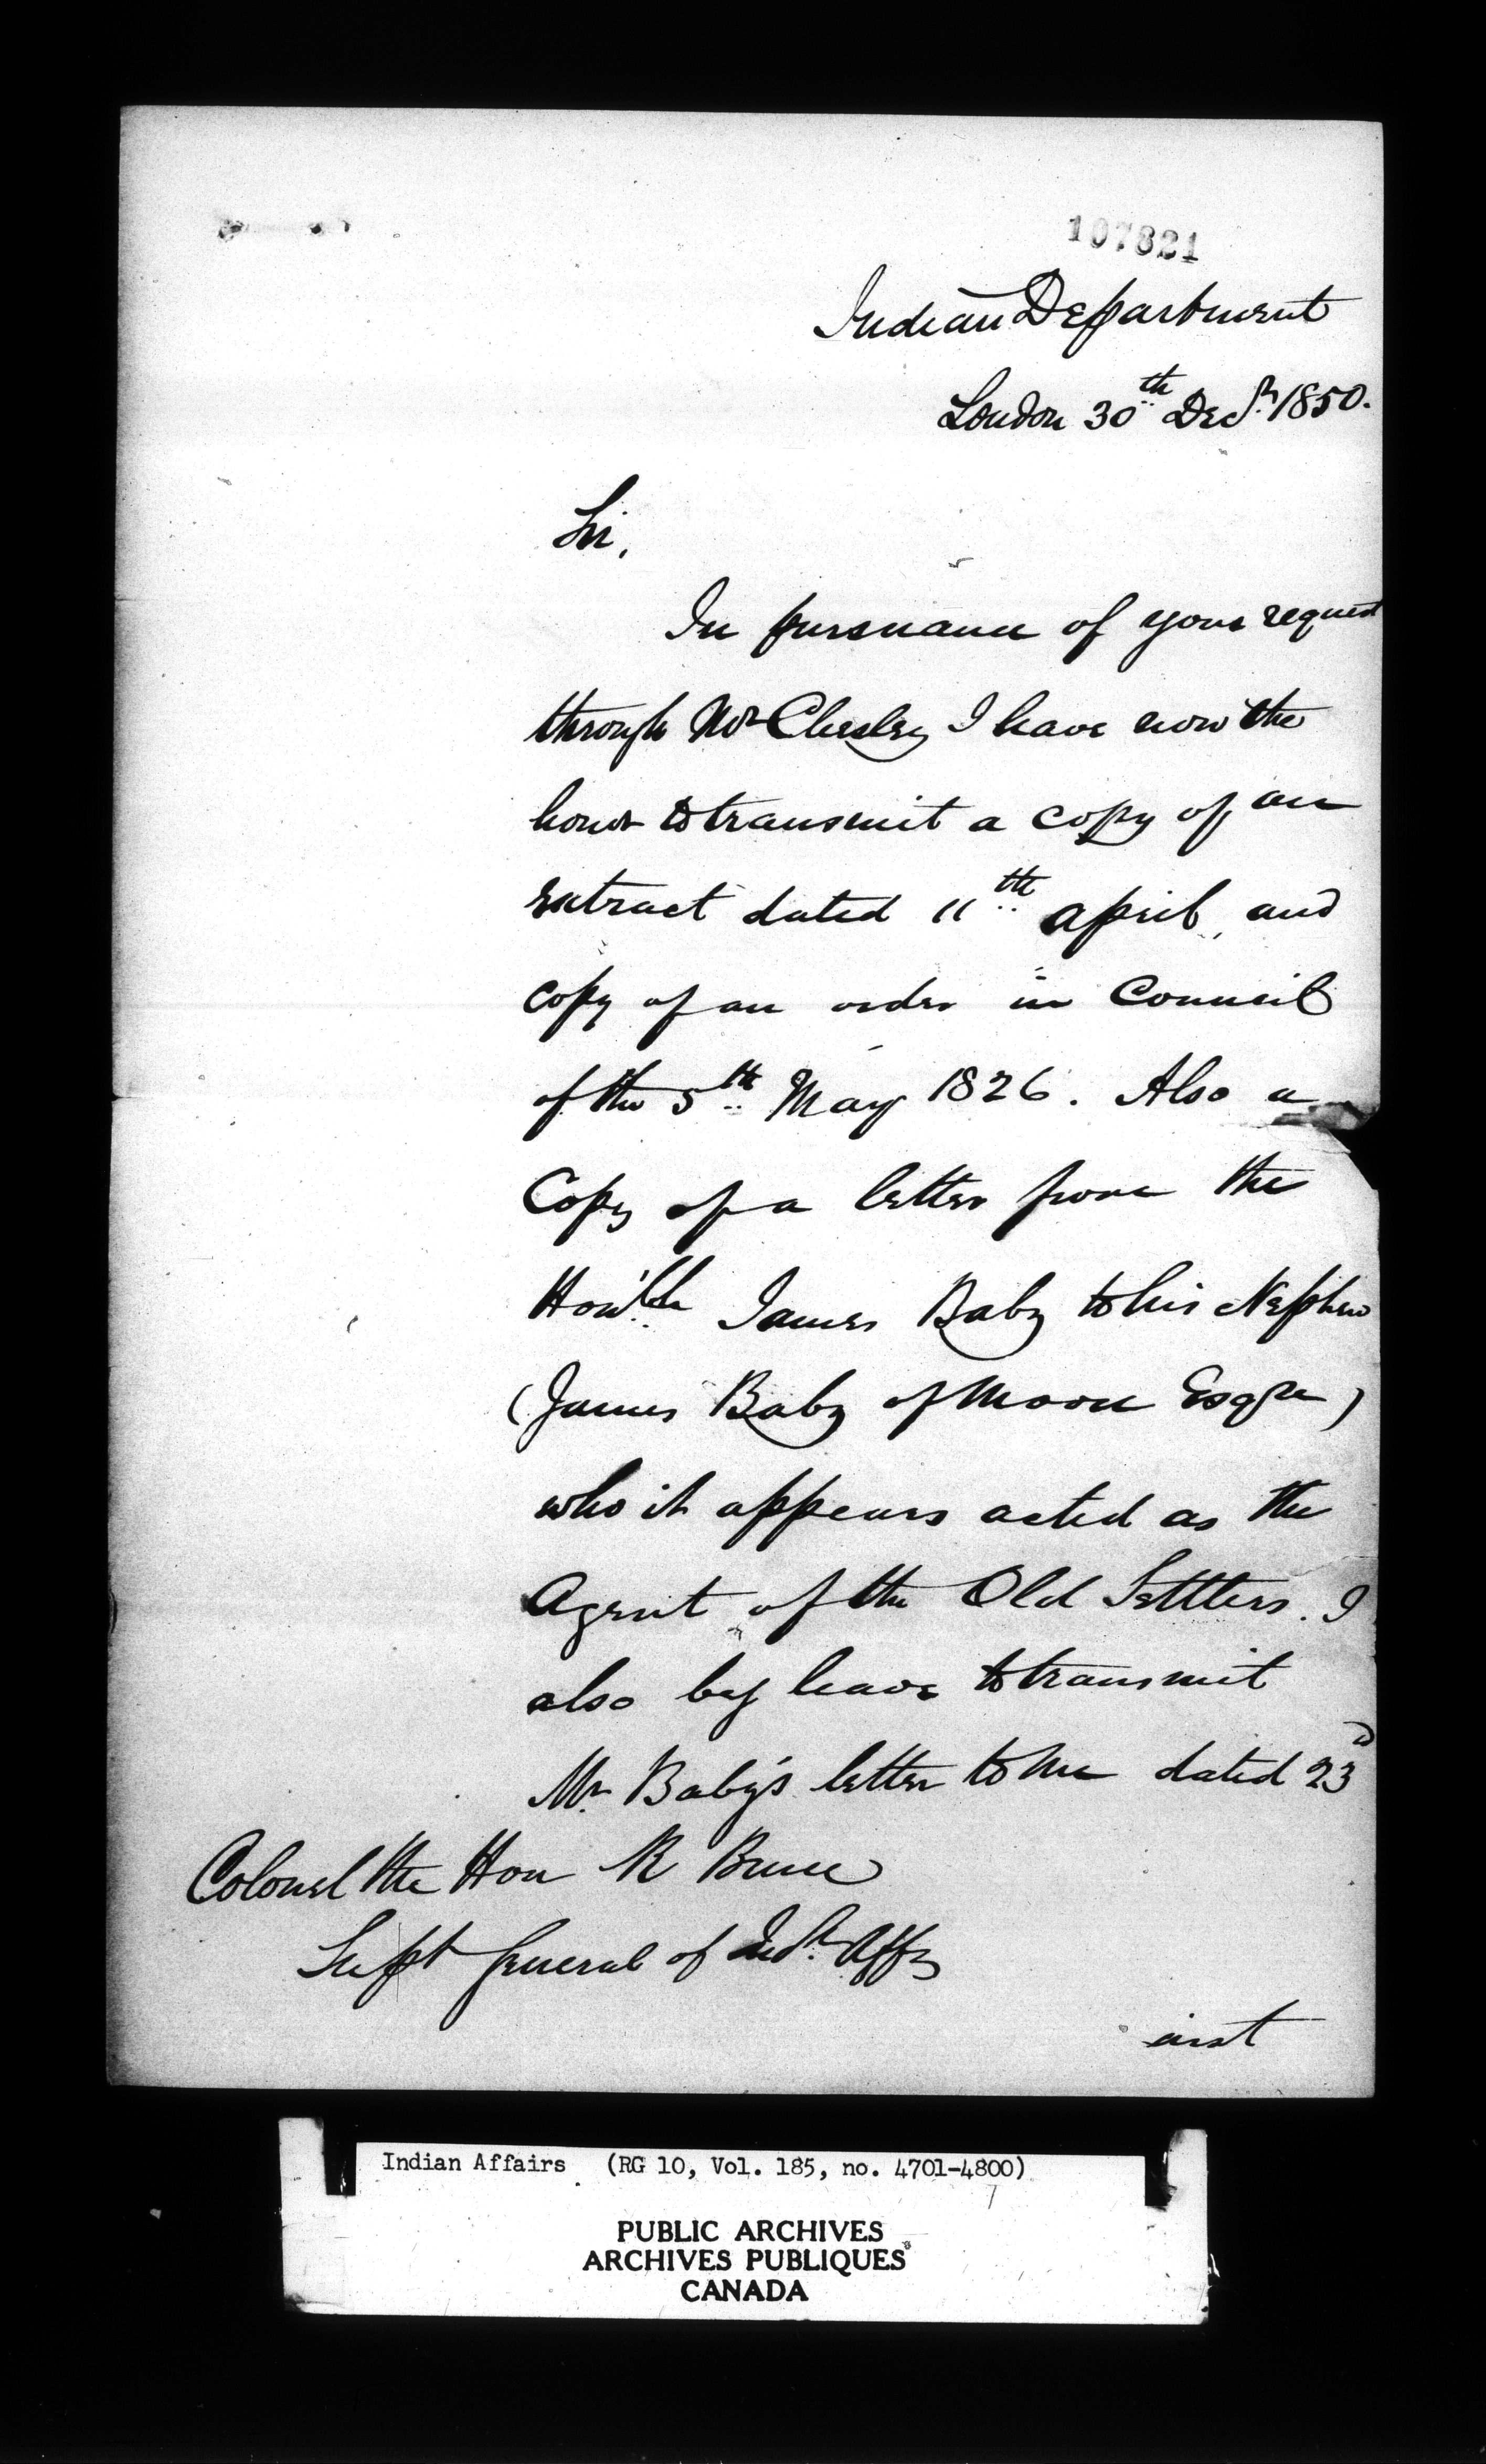 107821
Indian Department
London 30th Decr. 1850.
Sir,
In pursuance of your request
through Mr Chesley I have now the
honor to transmit a copy of an
extract dated 11th april, and
copy of an order in Council
of the 5th May 1826. Also a
Copy of a letter from the
Hon'ble James Baby to his Nephew
(James Baby of Moore Esqre)
who it appears acted as the
Agent of the Old Settlers. I
also beg leave to transmit
Mr. Baby's letter to me dated 23d
Colonel the Hon R Bruce
Supt General of Indn. Affrs
inst
Indian Affairs (RG 10, Vol. 185, no. 4701-4800)
PUBLIC ARCHIVES
ARCHIVES PUBLIQUES
CANADA